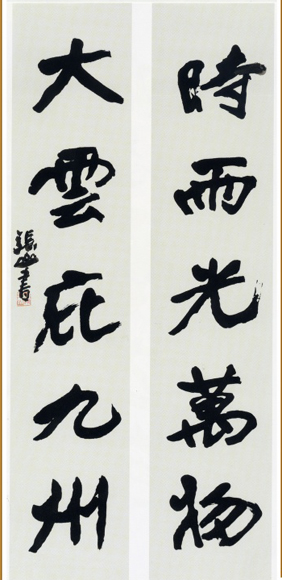 時雨光萬物
大雲庇九州
張山書